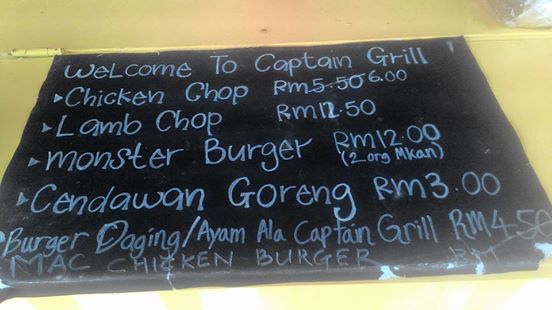 WELCOME To Captain Grill
Chicken Chop RM5.50 6.00
Lamb Chop RM12.50
monster Burger RM12.00
(2 org Mkan)
Cendawan Goreng RM3.00
Burger Daging/Ayam Ala Captain Grill RM4.50
MAC CHICKEN BURGER RM